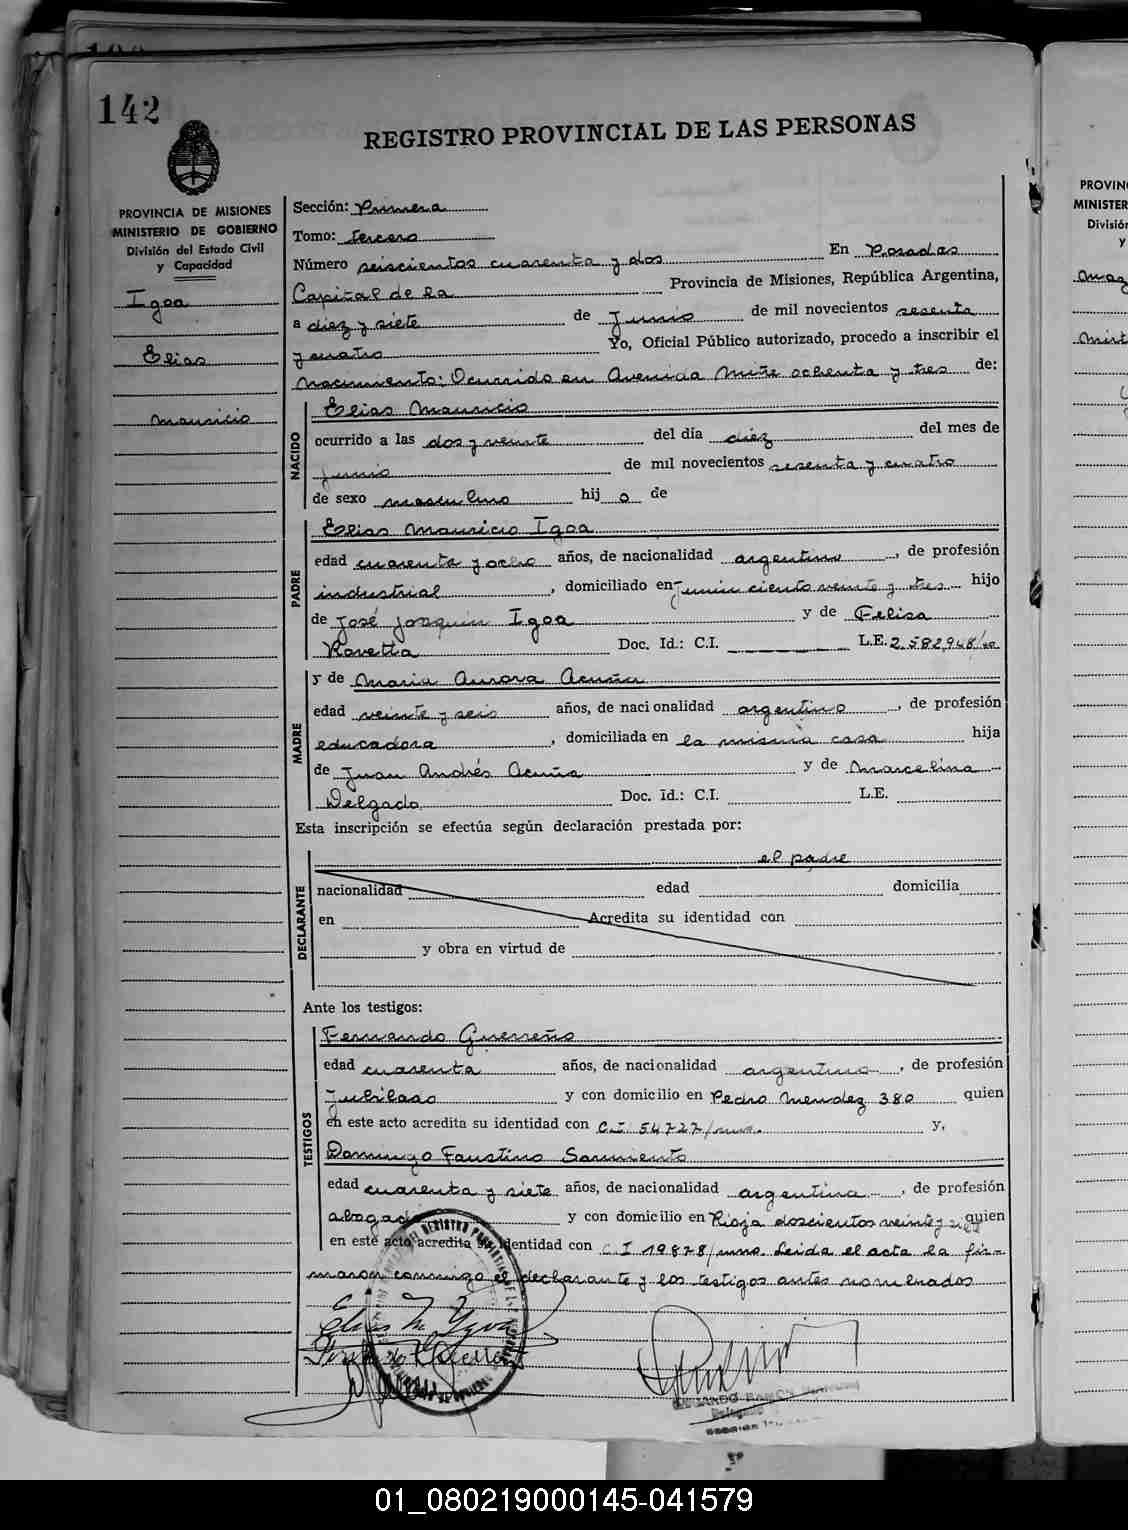 142
REGISTRO PROVINCIAL DE LAS PERSONAS
PROVINCIA DE MISIONES
MINISTERIO DE GOBIERNO
División del Estado Civil
y Capacidad
Igoa
Elias
Mauricio
Sección: Primera
Tomo: tercero
Número seiscientos cuarenta y dos En Posadas
Capital de la Provincia de Misiones, República Argentina,
a diez y siete de Junio de mil novecientos sesenta
y cuatro Yo, Oficial Público autorizado, procedo a inscribir el
nacimiento: Ocurrido en Avenida Mitre ochenta y tres de:
NACIDO
Elias Mauricio
ocurrido a las dos y veinte del día diez del mes de
Junio de mil novecientos sesenta y cuatro
de sexo masculino hij o de
PADRE
Elias Mauricio Igoa
edad cuarenta y ocho años, de nacionalidad argentino, de profesión
industrial, domiciliado en Junin ciento veinte y tres hijo
de José Joaquin Igoa y de Felisa
Rovetta Doc. Id.: C.I. L.E. 2.582.948/
MADRE
y de Maria Aurora Acuña
edad veinte y seis años, de nacionalidad argentino, de profesión
educadora, domiciliada en la misma casa hija
de Juan Andrés Acuña y de Marcelina
Delgado Doc. Id.: C.I. L.E.
Esta inscripción se efectúa según declaración prestada por:
DECLARANTE
el padre
nacionalidad edad domicilia
en Acredita su identidad con
y obra en virtud de
Ante los testigos:
TESTIGOS
Fernando Guerreño
edad cuarenta años, de nacionalidad argentino, de profesión
Jubilado y con domicilio en Pedro Mendez 380 quien
en este acto acredita su identidad con C.I 54727/mnes. y,
Domingo Faustino Sarmiento
edad cuarenta y siete años, de nacionalidad argentina, de profesión
abogado y con domicilio en Rioja doscientos veinte y siete quien
en este acto acredita su identidad con C.I 19878/mno. Leida el acta la fir-
maron conmigo el declarante y los testigos antes nombrados
Elias M. Ygoa
Delegado
PROVIN
MINISTER
Divisió
y
01_080219000145-041579